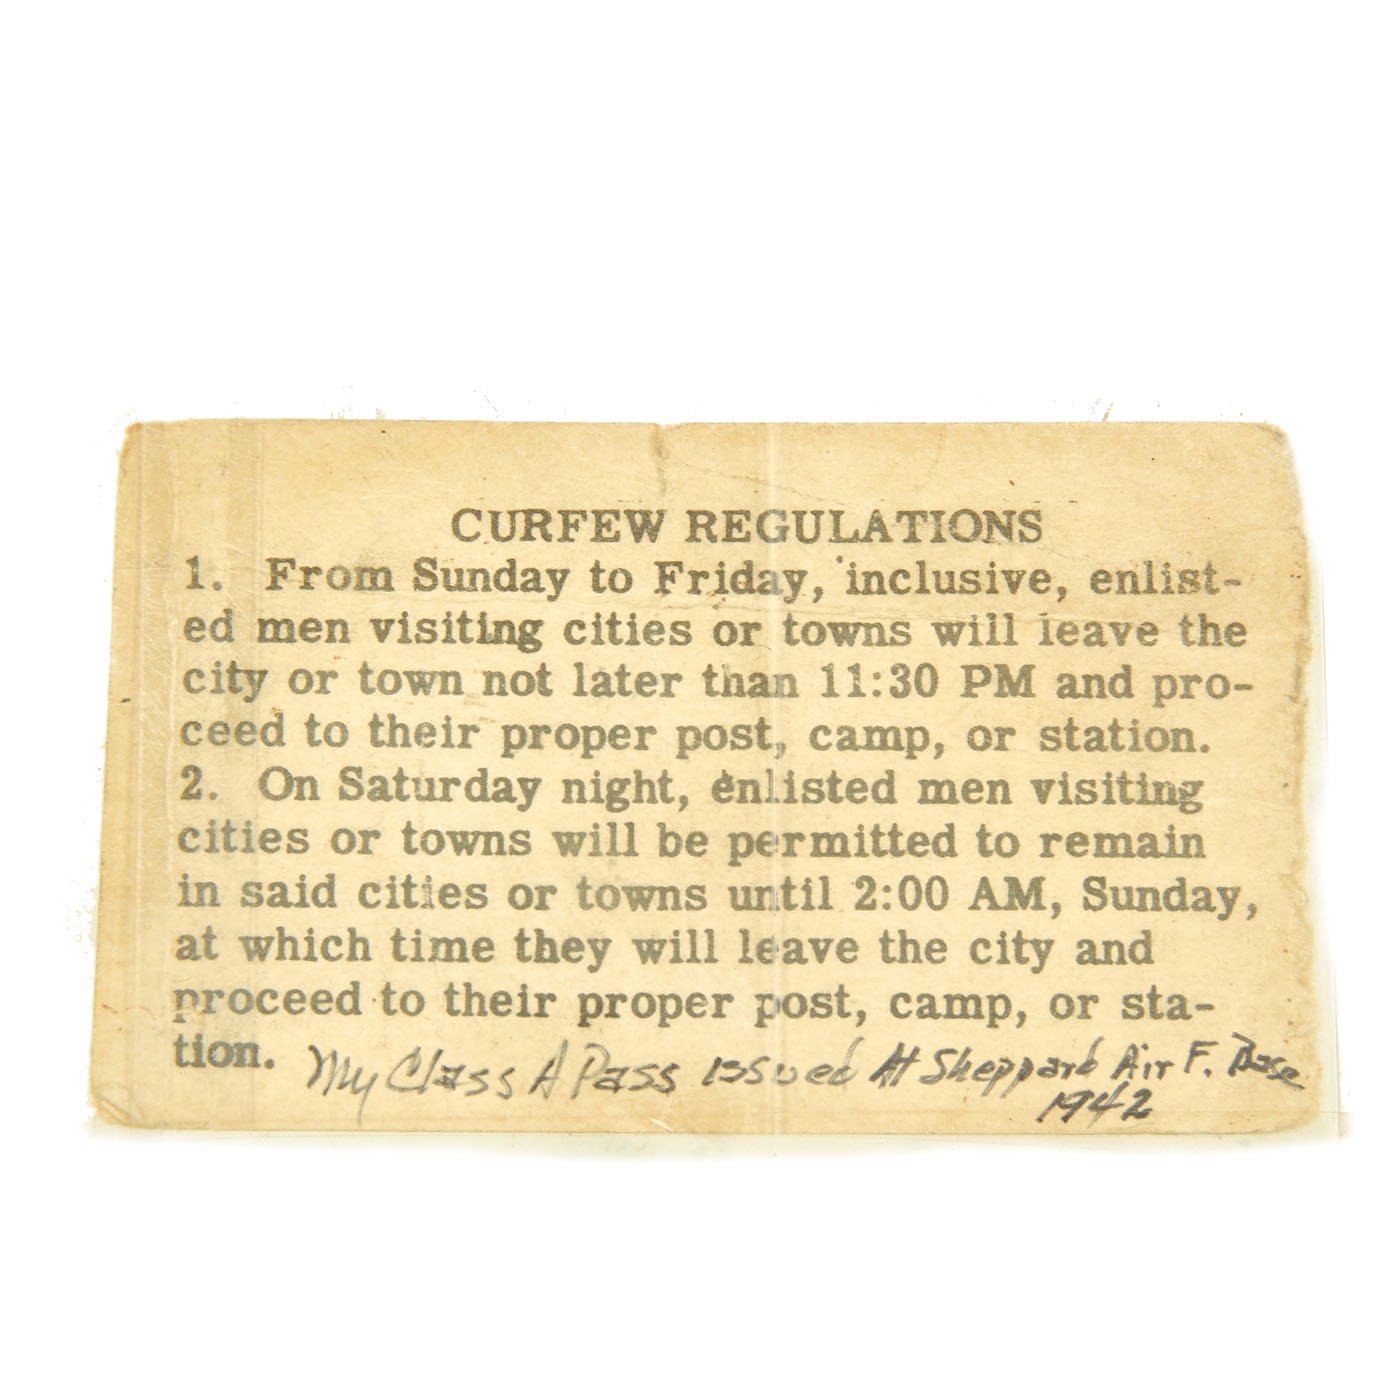 CURFEW REGULATIONS
1. From Sunday to Friday, inclusive, enlist-
ed men visiting cities or towns will leave the
city or town not later than 11:30 PM and pro-
ceed to their proper post, camp, or station.
2. On Saturday night, enlisted men visiting
cities or towns will be permitted to remain
in said cities or towns until 2:00 AM, Sunday,
at which time they will leave the city and
proceed to their proper post, camp, or sta-
tion.
My Class A Pass issued At Sheppard Air F. Base
1942